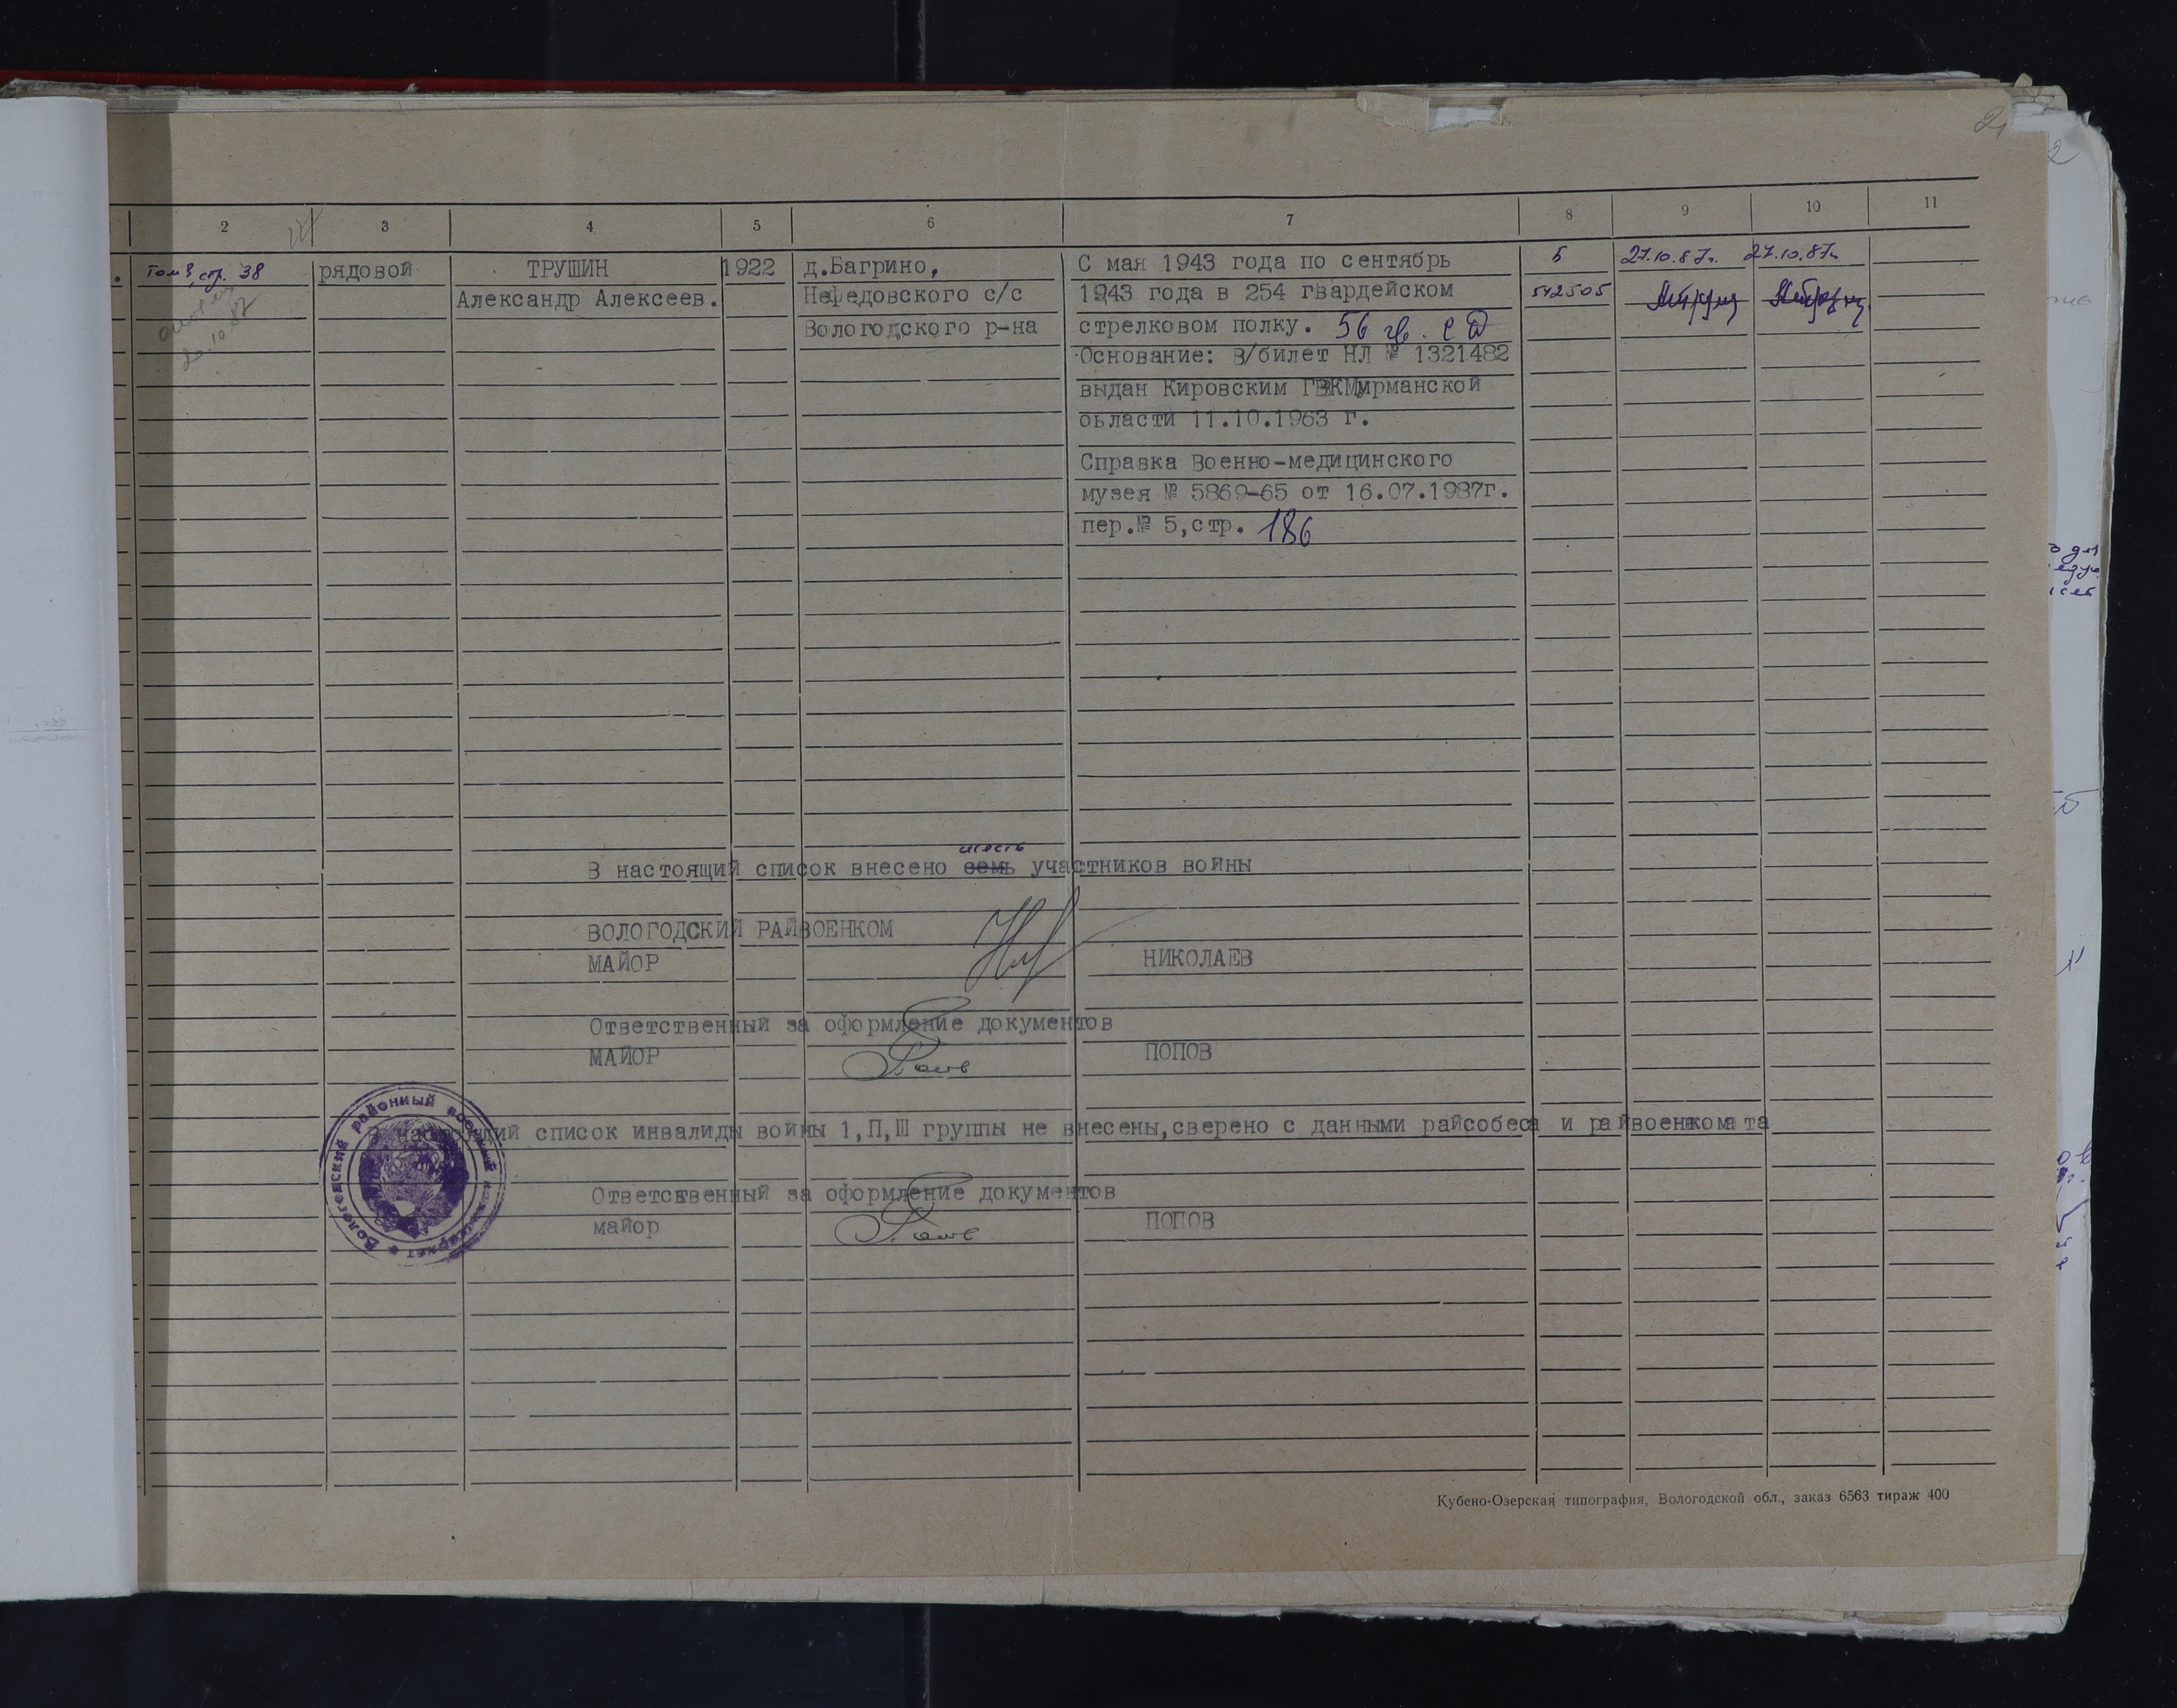 2 3 4 5 6 7 8 9 10 11
Том 3, стр. 38 рядовой ТРУШИН 1922 д.Багрино, С мая 1943 года по сентябрь Б 27.10.87г. 27.10.87г.
Александр Алексеев. Нефедовского с/с 1943 года в 254 гвардейском 542505
20.10.87 Вологодского р-на стрелковом полку. 56 гв. сд
Основание: в/билет НЛ № 1321482
выдан Кировским ГВКМурманской
оьласти 11.10.1963 г.
Справка Военно-медицинского
музея № 5869-65 от 16.07.1987г.
пер.№ 5,стр. 186
шесть
В настоящий список внесено семь участников войны
ВОЛОГОДСКИЙ РАЙВОЕНКОМ
МАЙОР НИКОЛАЕВ
Ответственный за оформление документов
МАЙОР ПОПОВ
В настоящий список инвалиды войны 1,П,Ш группы не внесены,сверено с данными райсобеса и райвоенкомата
Ответственный за оформление документов
майор ПОПОВ
Вологодский районный военный комиссариат
Кубено-Озерская типография, Вологодской обл., заказ 6563 тираж 400